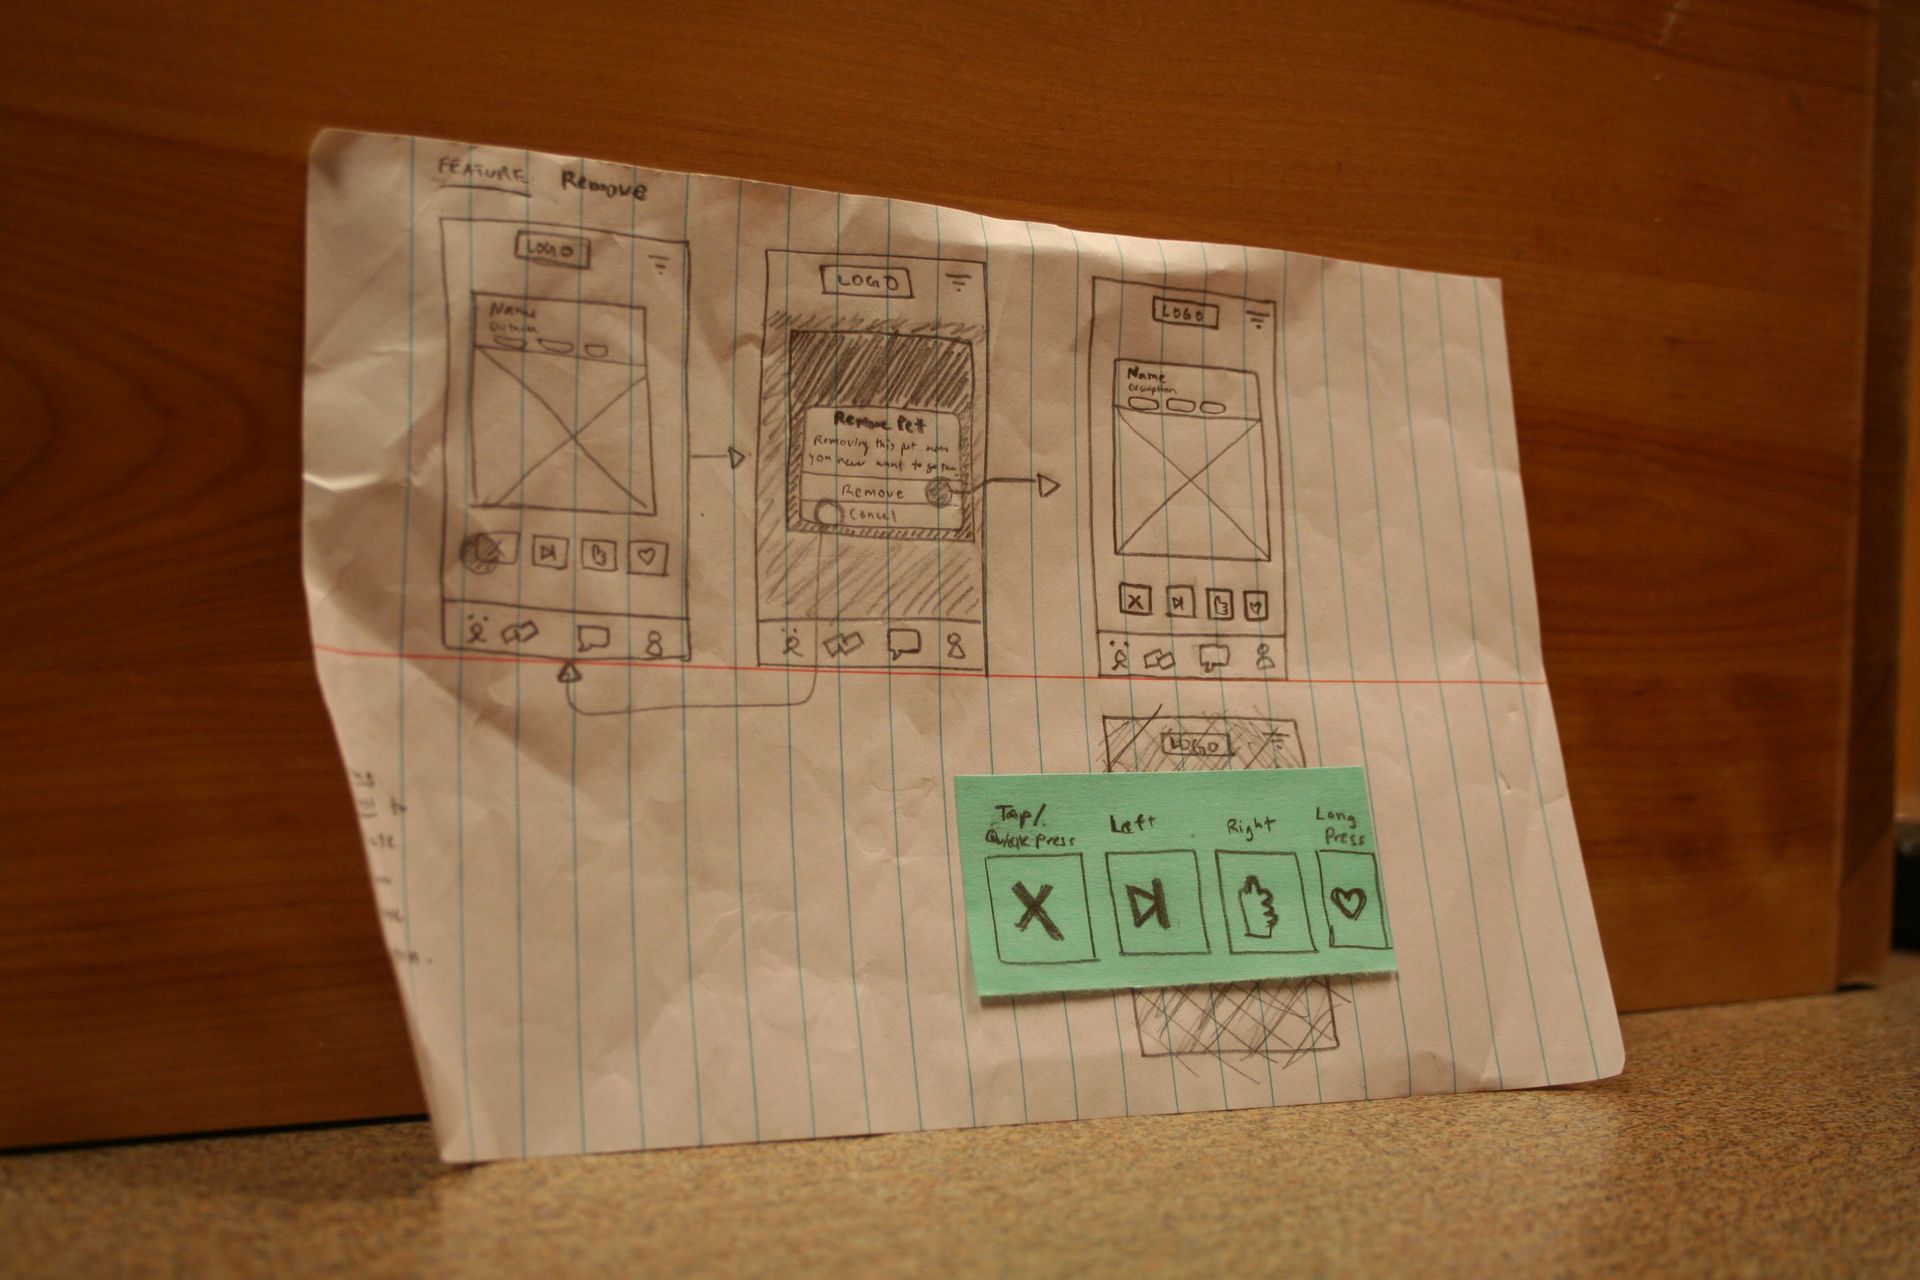 FEATURE Remove
LOGO
Name
LOGO
Remove Pet
Removing this pet
you never want to
Remove
Cancel
LOGO
Name
Description
LOGO
Tap/
Quick press
Left
Right
Long
Press
X